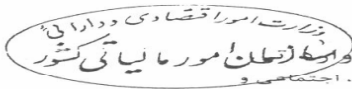 وزارت امور اقتصادی و دارائی
سازمان امور مالیاتی کشور
اجتماعی و